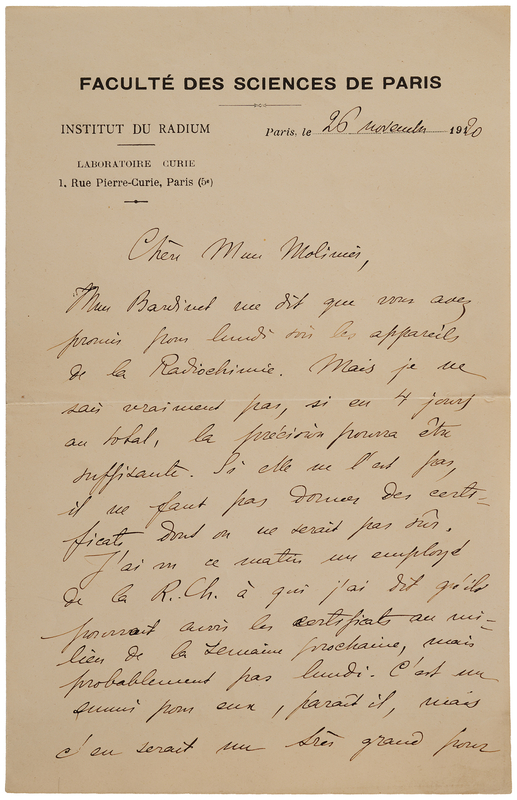 FACULTÉ DES SCIENCES DE PARIS
INSTITUT DU RADIUM
Paris, le 26 novembre 1920
LABORATOIRE CURIE
1, Rue Pierre-Curie, Paris (5e)
Chère Mme Molinier,
Mme Bardinet me dit que vous avez
promis pour lundi soir les appareils
de la Radiochimie. Mais je ne
sais vraiment pas, si en 4 jours
au total, la précision pourra être
suffisante. Si elle ne l'est pas,
il ne faut pas donner des certi=
ficats dont on ne serait pas sûr.
J'ai vu ce matin un employé
de la R.Ch. à qui j'ai dit qu'ils
pourrait avoir les certificats au mi=
lieu de la semaine prochaine, mais
probablement pas lundi. C'est un
ennui pour eux, paraît il, mais
c'en serait un très grand pour